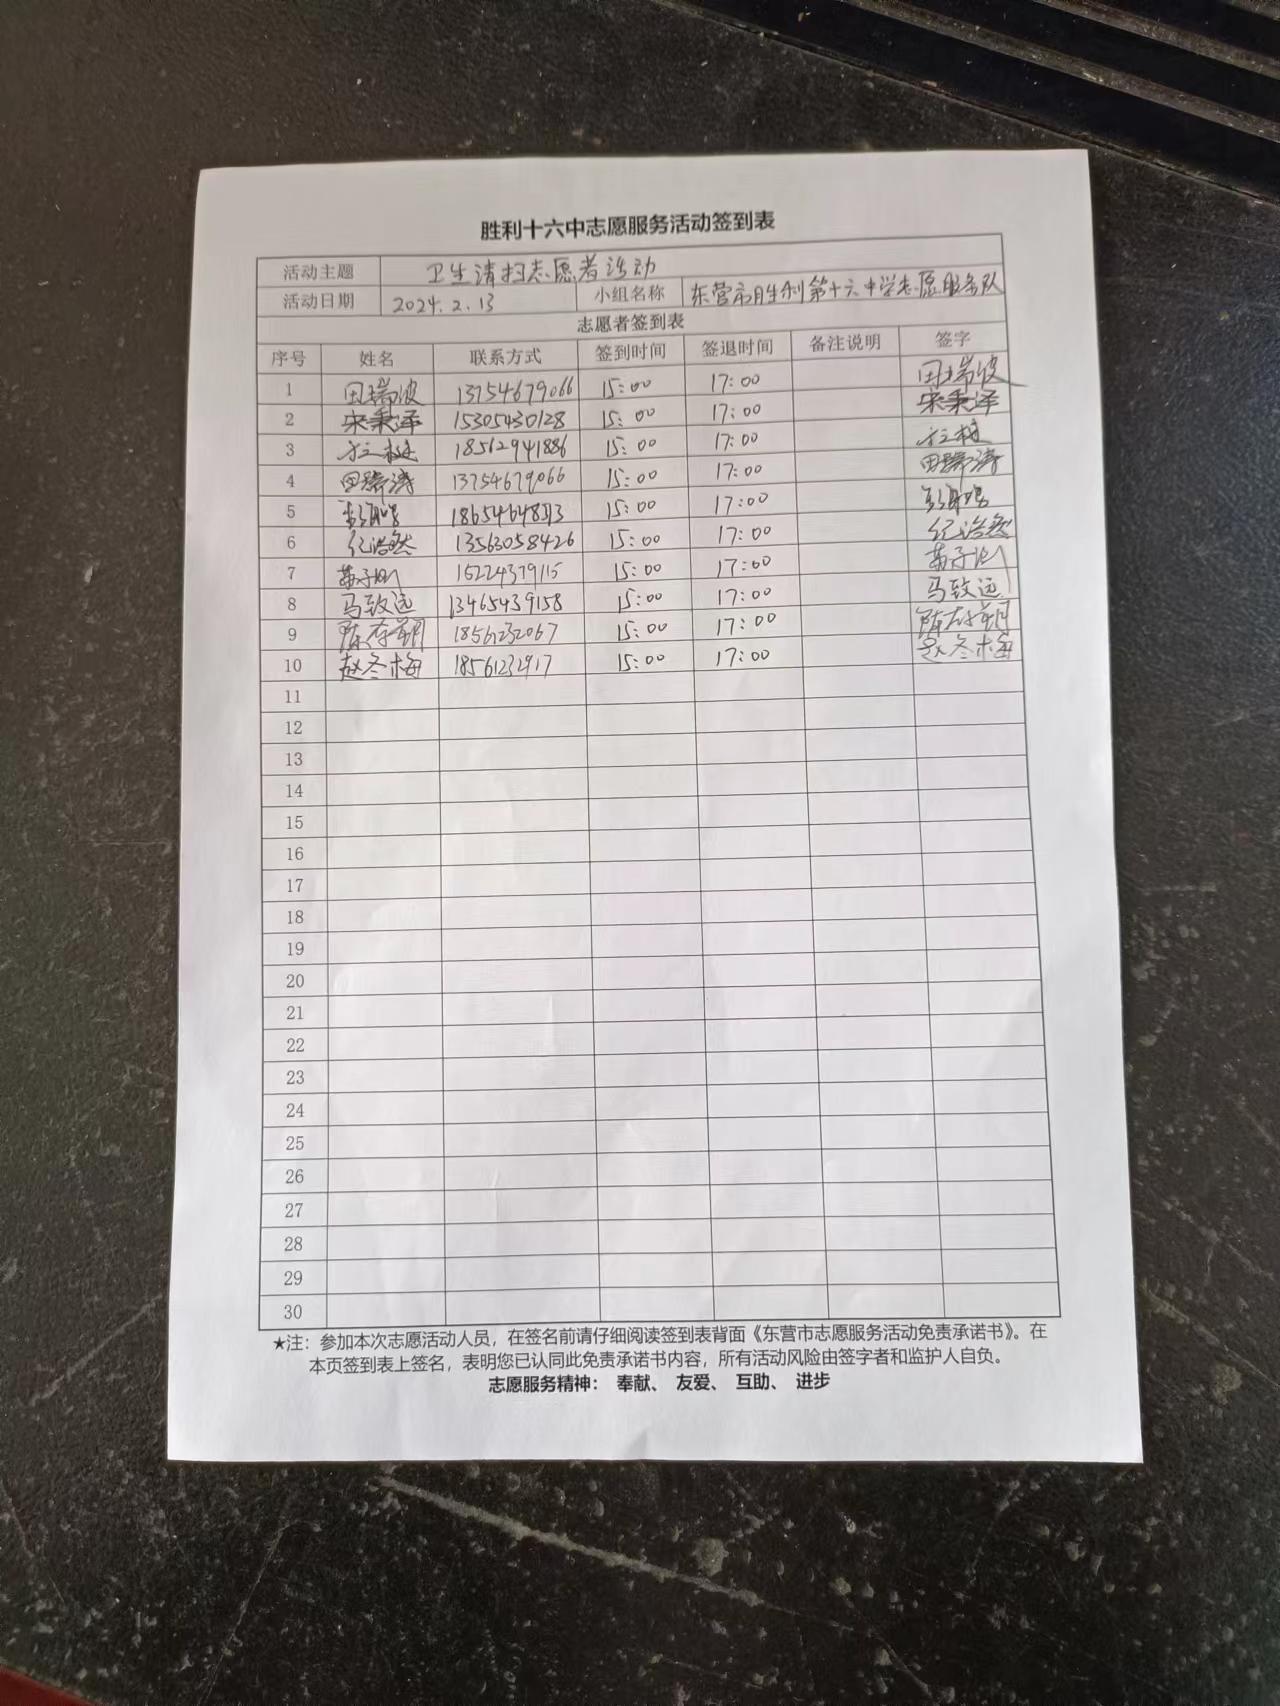 胜利十六中志愿服务活动签到表
活动主题 卫生清扫志愿者活动
活动日期 2024.2.13 小组名称 东营市胜利第十六中学志愿服务队
志愿者签到表
序号 姓名 联系方式 签到时间 签退时间 备注说明 签字
1 田瑞波 13754679066 15:00 17:00 田瑞波
2 宋秉泽 15305430128 15:00 17:00 宋秉泽
3 18562941886 15:00 17:00
4 田瑞涛 13754679066 15:00 17:00 田瑞涛
5 15:00 17:00
6 纪浩然 13563058426 15:00 17:00 纪浩然
7 15224379115 15:00 17:00
8 马致远 13465439158 15:00 17:00 马致远
9 18561232067 15:00 17:00
10 赵冬梅 18561232917 15:00 17:00 赵冬梅
11
12
13
14
15
16
17
18
19
20
21
22
23
24
25
26
27
28
29
30
★注：参加本次志愿活动人员，在签名前请仔细阅读签到表背面《东营市志愿服务活动免责承诺书》。在
本页签到表上签名，表明您已认同此免责承诺书内容，所有活动风险由签字者和监护人自负。
志愿服务精神： 奉献、 友爱、 互助、 进步